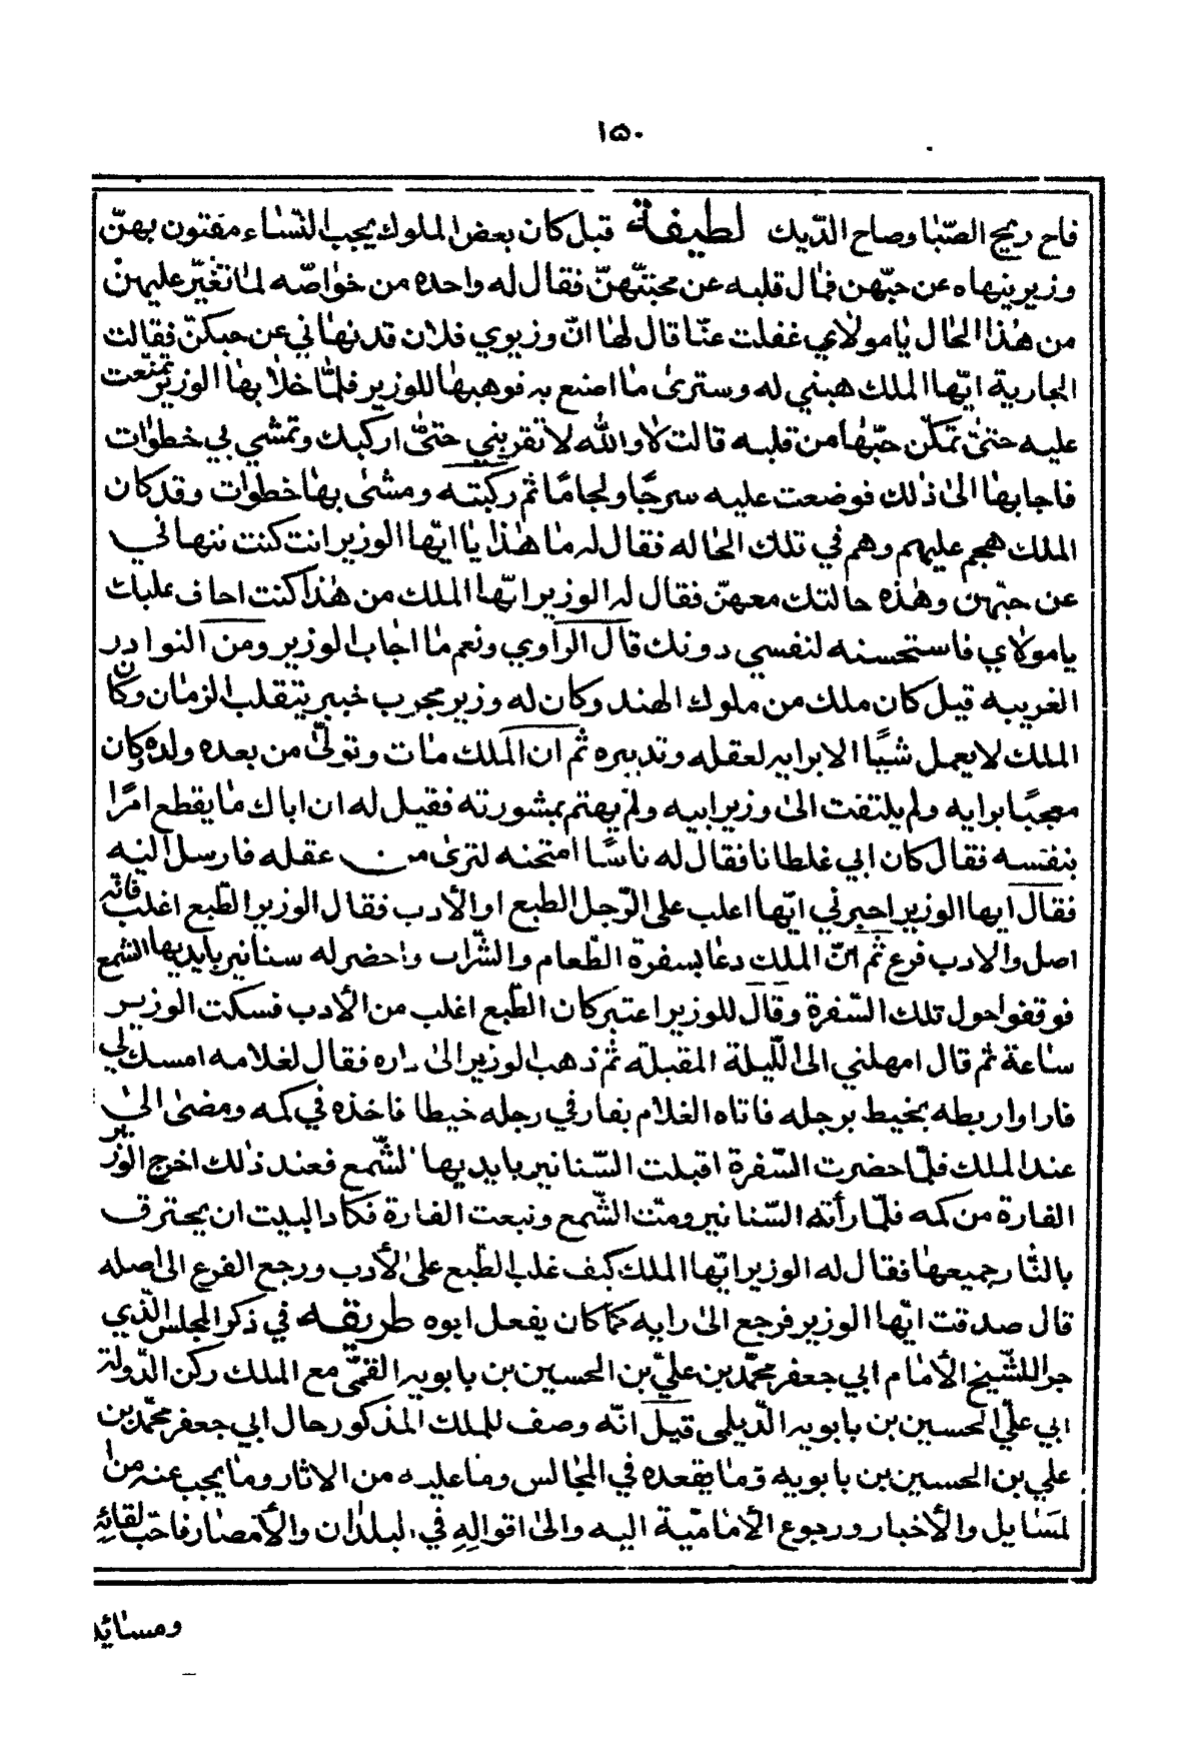 ١٥٠
فاح ريح الصّبا وصاح الدّيك لطيفة قيل كان بعض الملوك يحب النّساء مفتون بهنّ
وزير ينهاه عن حبّهن فمال قلبه عن محبتّهنّ فقال له واحده من خواصّه لما تغيّر عليهنّ
من هذا الحال يا مولاي غفلت عنّا قال لها انّ وزيري فلان قد نهاني عن حبكنّ فقالت
الجارية ايّها الملك هبني له وسترى ما اصنع به فوهبها للوزير فلمّا خلا بها الوزير تمنّعت
عليه حتىّ تمكّن حبّها من قلبه قالت لا والله لا تقربني حتىّ اركبك وتمشي بي خطوات
فاجابها الى ذلك فوضعت عليه سرجًا ولجامًا ثم ركبته ومشىٰ بها خطوات وقد كان
الملك هجم عليهم وهم في تلك الحاله فقال له ما هذا يا ايّها الوزير انت كنت تنهاني
عن حبّهن وهذه حالتك معهنّ فقال له الوزير ايّها الملك من هذا كنت اخاف عليك
يا مولاي فاستحسنه لنفسي دونك قال الراوي ونعم ما اجاب الوزير ومن النوادر
الغريبه قيل كان ملك من ملوك الهند وكان له وزير مجرب خبير بتقلب الزمان وكان
الملك لا يعمل شيًا الا برايه لعقله وتدبيره ثم ان الملك مات وتولّى من بعده ولده وكان
معجبًا برايه ولم يلتفت الى وزير ابيه ولم يهتم بمشورته فقيل له ان اباك ما يقطع امرًا
بنفسه فقال كان ابي غلطانا فقال له ناسًا امتحنه لترى من عقله فارسل اليه
فقال ايها الوزير اخبرني ايّها اغلب على الرّجل الطبع او الأدب فقال الوزير الطّبع اغلب فانّه
اصل والادب فرع ثم انّ الملك دعا بسفرة الطّعام والشّراب واحضر له سنانير بايديها الشمع
فوقفوا حول تلك السّفرة وقال للوزير اعتبر كان الطّبع اغلب من الأدب فسكت الوزير
ساعة ثم قال امهلني الى اللّيلة المقبلة ثم ذهب الوزير الى داره فقال لغلامه امسك لي
فارا واربطه بخيط برجله فاتاه الغلام بفار في رجله خيطا فاخذه في كمه ومضىٰ الىٰ
عند الملك فلمّا حضرت السّفرة اقبلت السّنانير بايديها الشّمع فعند ذلك اخرج الوزير
الفارة من كمه فلمّا رأته السّنانير ومت الشّمع وتبعت الفارة فكاد البيت ان يحترق
بالنّار جميعها فقال له الوزير ايّها الملك كيف غلب الطّبع على الأدب ورجع الفرع الى اصله
قال صدقت ايّها الوزير فرجع الى رايه كما كان يفعل ابوه طريقه في ذكر المجلس الّذي
جرا للشّيخ الأمام ابي جعفر محمّد بن عليّ بن الحسين بن بابويه القمّي مع الملك ركن الدّولة
ابي عليّ الحسين بن بابويه الدّيلمى قيل انّه وصف للملك المذكور حال ابي جعفر محمّد بن
علي بن الحسين بن بابويه وما يقعده في المجالس وما عليه من الاثار وما يجب عنه من
لمسايل والأخبار ورجوع الأماميّة اليه والى اقواله في البلدان والأمصار فاحبّ لقائه
ومسائله